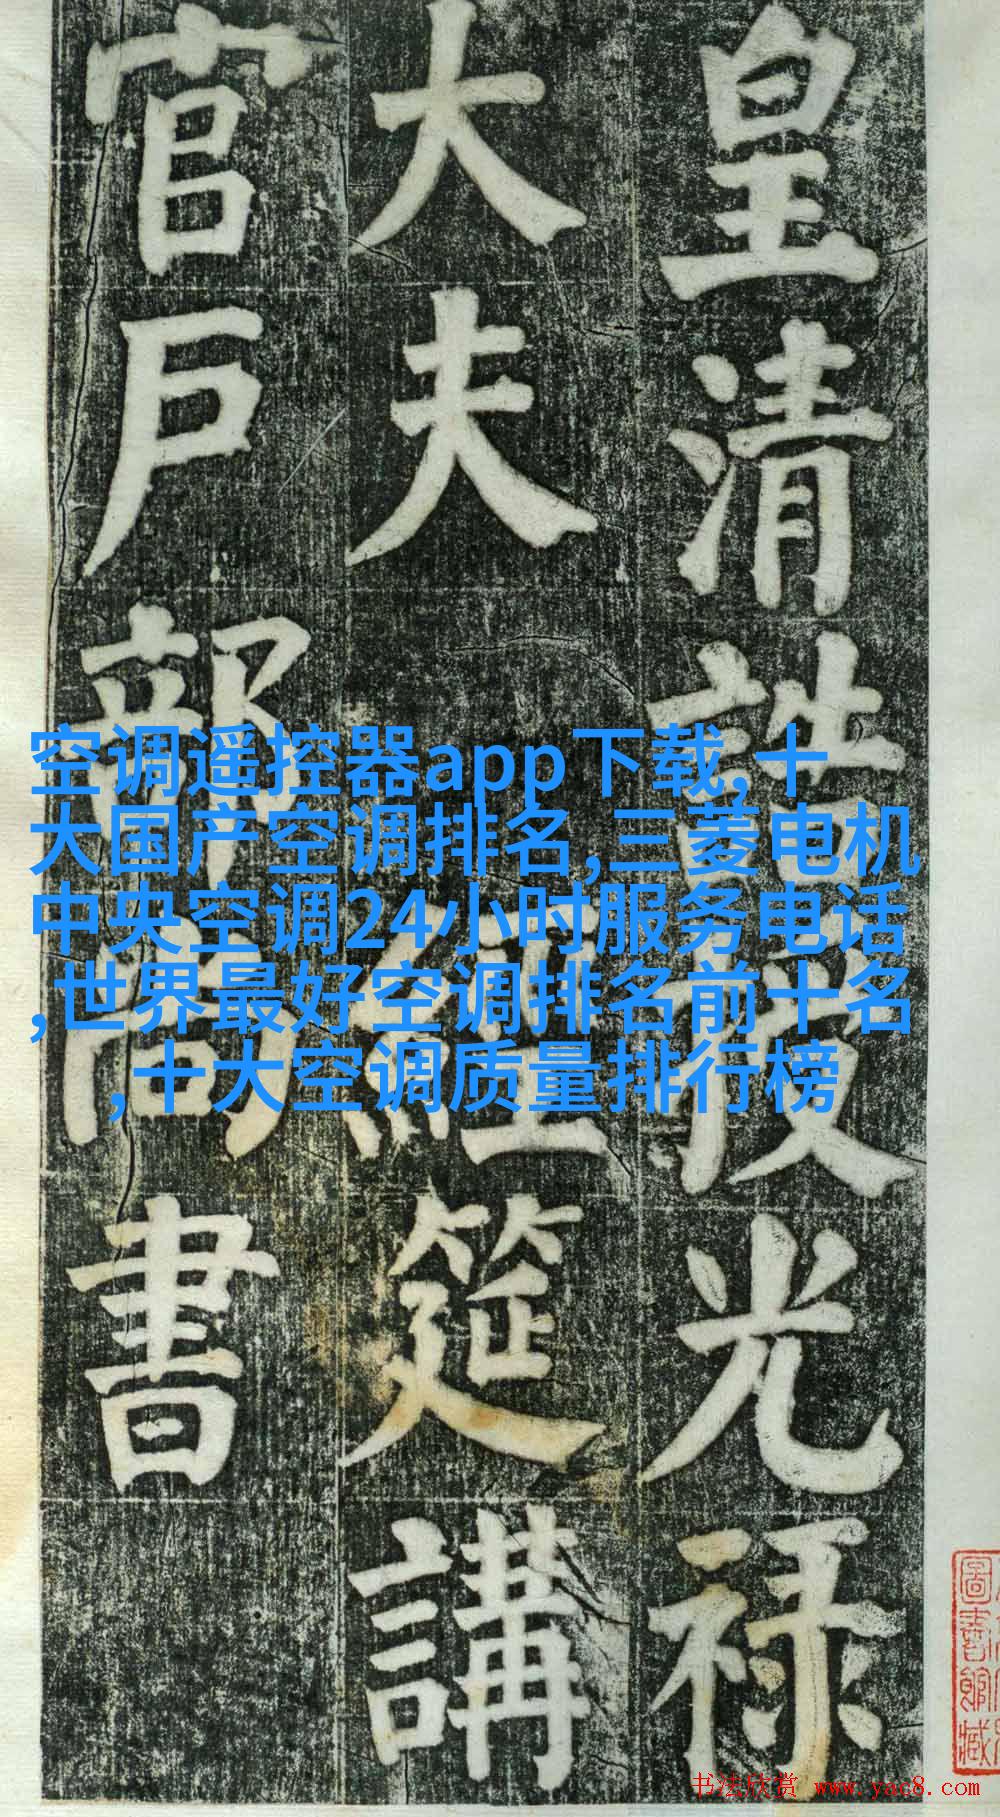 皇清誥授光禄
大夫經筵講
官戸部尚書
空调遥控器app下载,十
大国产空调排名,三菱电机
中央空调24小时服务电话
,世界最好空调排名前十名
,十大空调质量排行榜
圖書館藏
书法欣赏 www.yac8.com